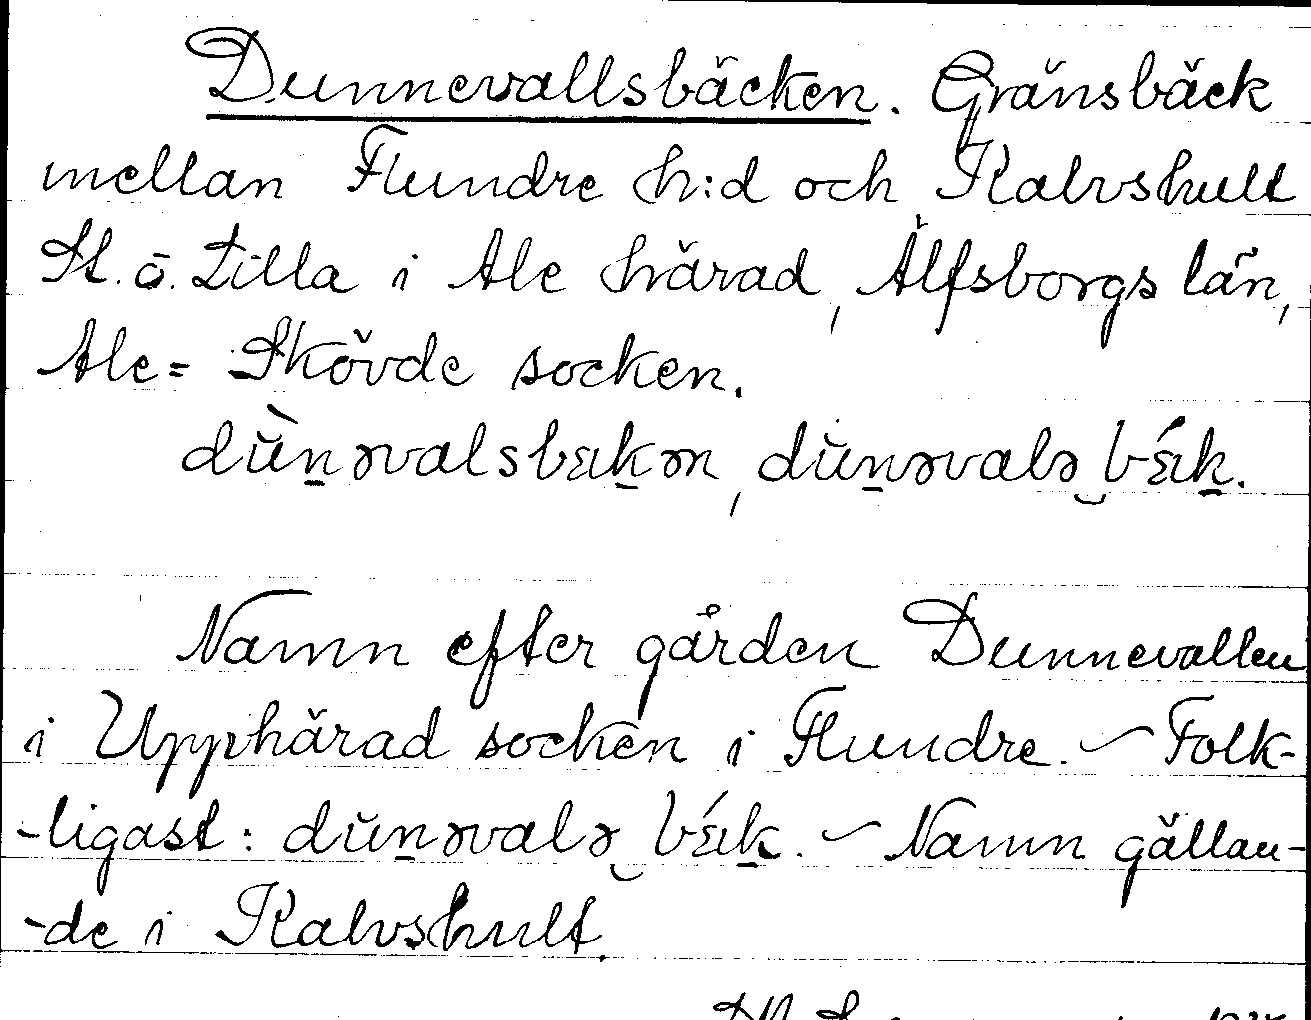 Dunnevallsbäcken. Gränsbäck
mellan Flundre h:d och Kalvshult
St. o. Lilla i Ale härad, Älfsborgs län,
Ale= Skövde socken.
dùn̲əvalsbæk̲ən, dun̲əvalə‿bǽk̲.
Namn efter gården Dunnevallen
i Upphärad socken i Flundre. ~ Folk-
-ligast: dun̲əvalə‿bǽk̲. ~ Namn gällan-
-de i Kalvshult.